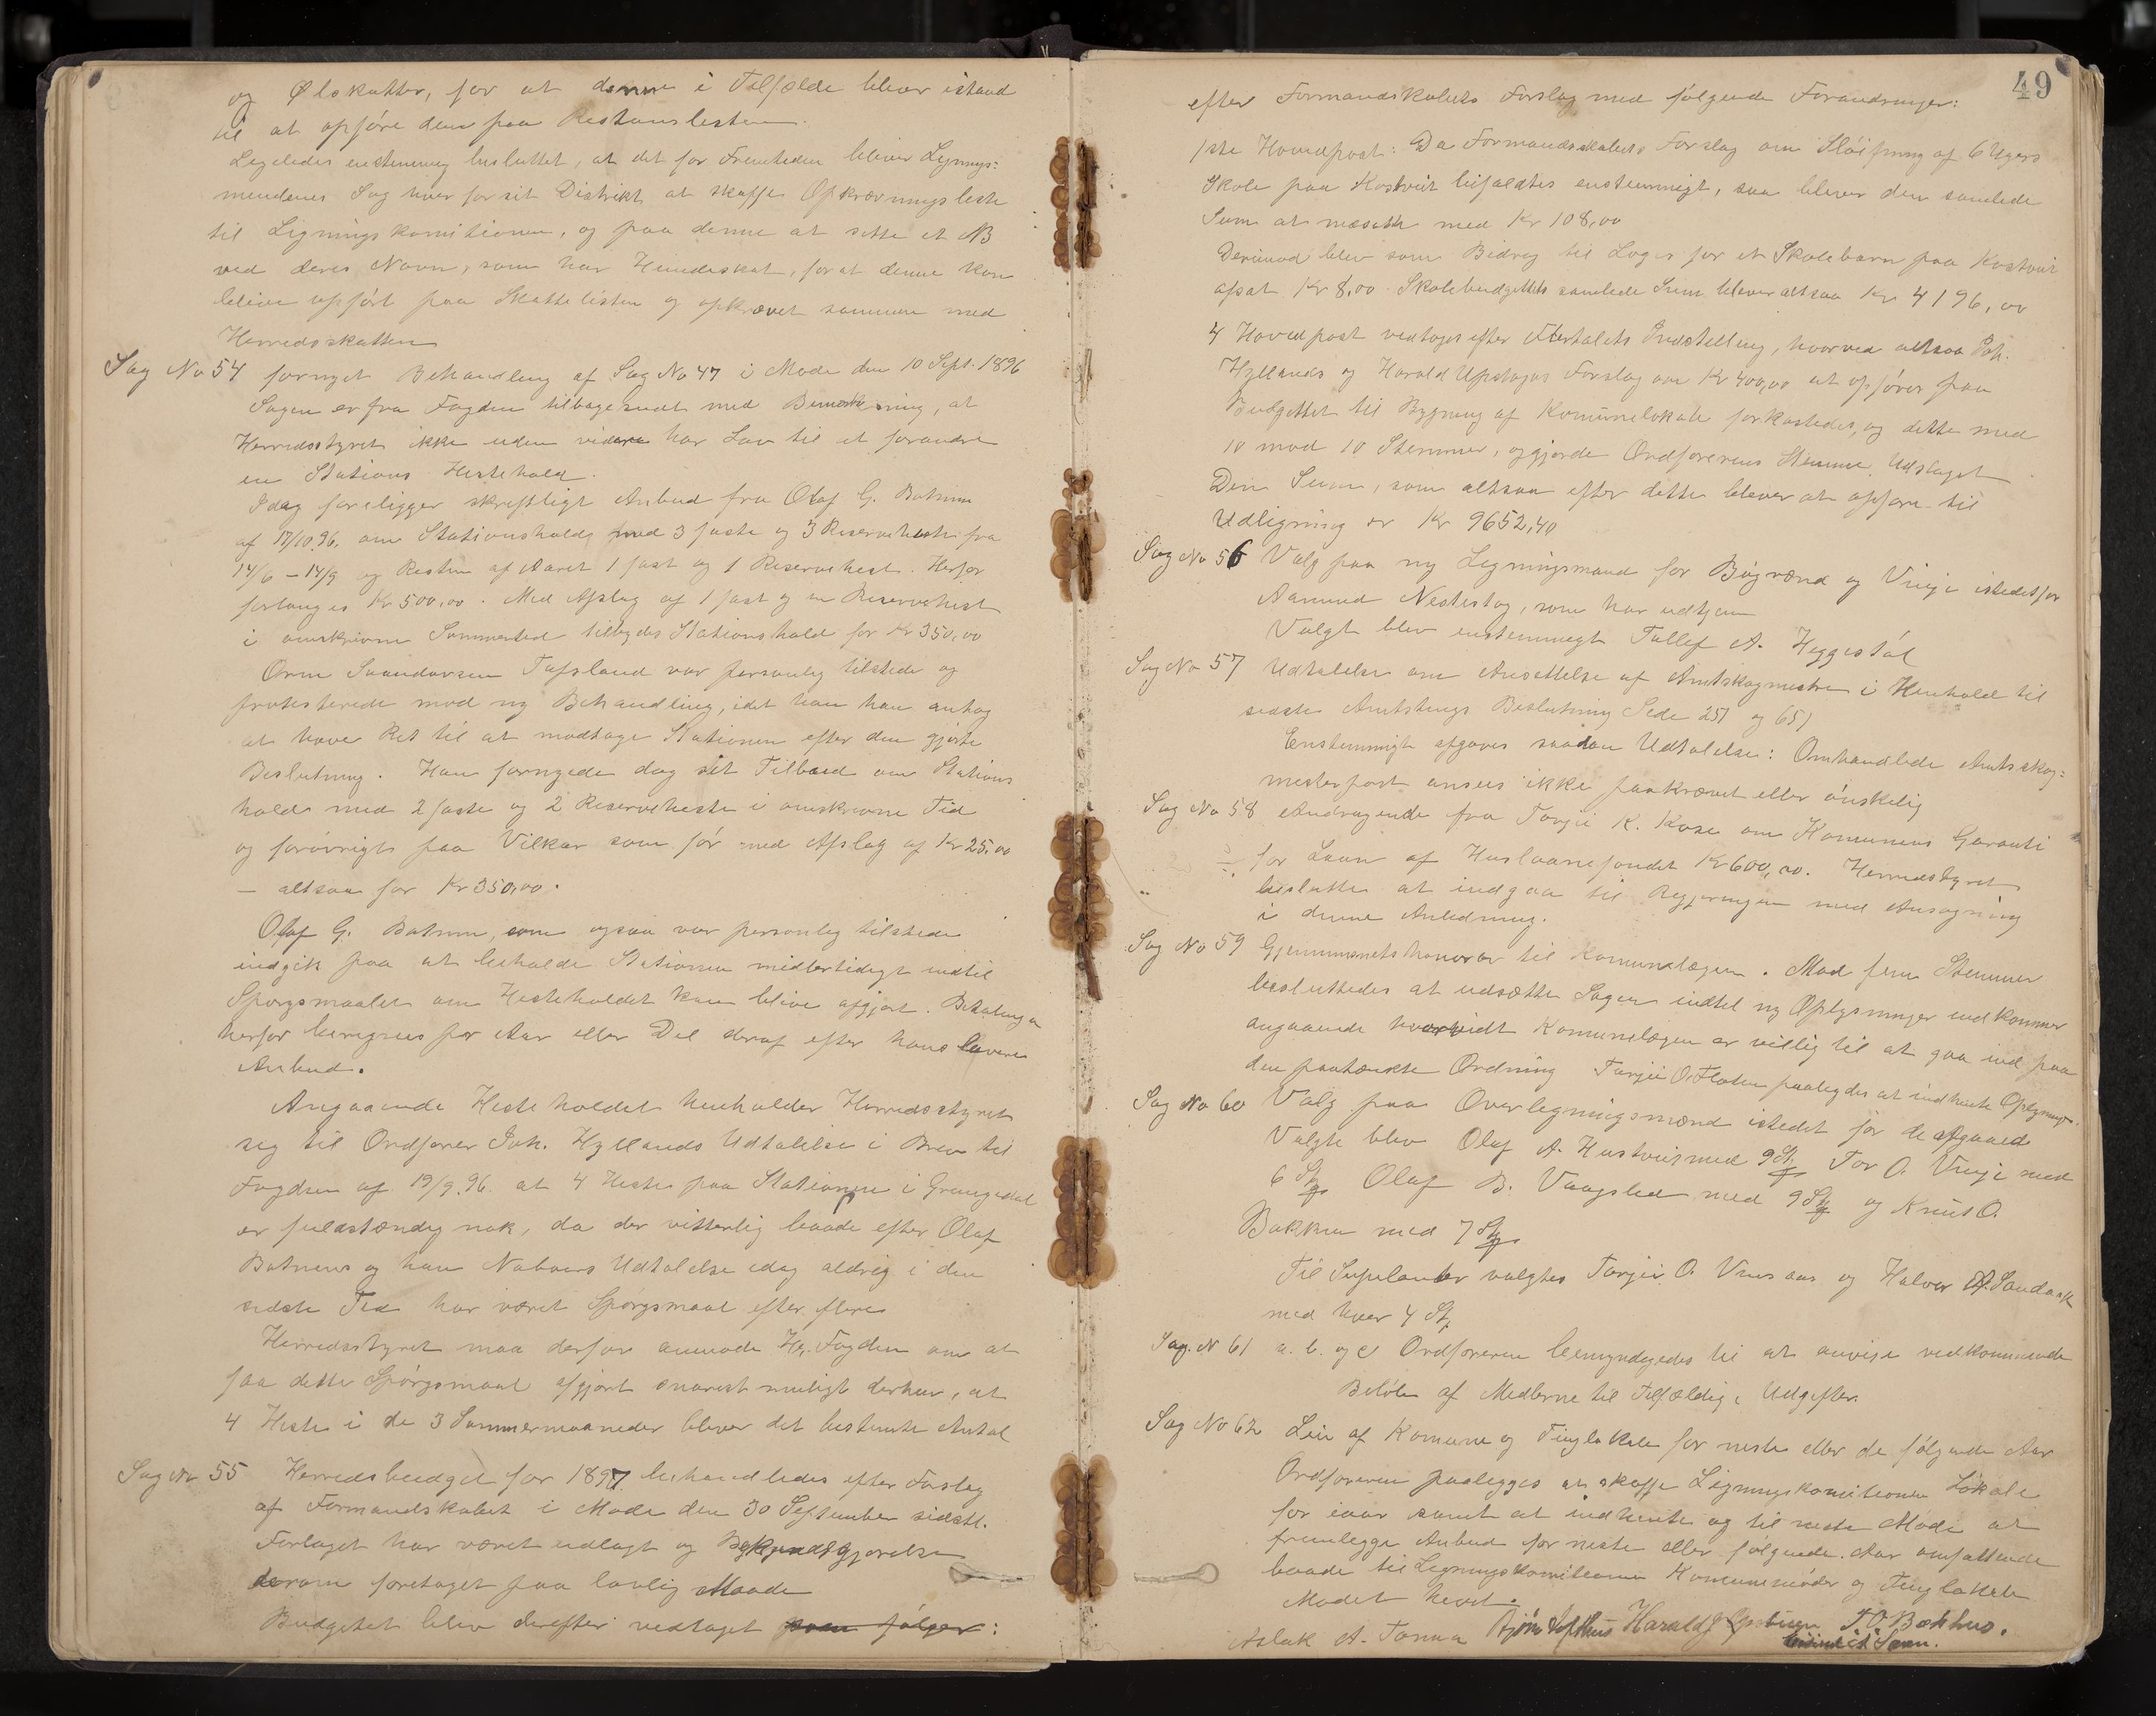 og Ølskatter, for at denne i Tilfælde bliver istand
til at opføre dem paa Restanslisten.
Ligeledes enstemmig besluttet, at det for Fremtiden bliver Lignings=
mendenes Sag hver for sit Distrikt at skaffe Opkrævningsliste
til Ligningskomitionen, og paa denne at sette et NB
ved deres Navn, som har Hundeskat, for at denne kan
blive opført paa Skattelisten og opkrævet sammen med
Herredsskatten
Sag No 54 fornyet Behandling af Sag No 47 i Møde den 10 Sept. 1896
Sagen er fra Fogden tilbagesendt med Bemerkning, at
Herredsstyret ikke uden videre har Lov til at forandre
en Stations Hestehold.
Idag foreligger skriftligt Anbud fra Olaf G. Botnen
af 17/10.96. om Stationshold med 3 faste og 3 Reserveheste fra
14/6 – 14/9 og Resten af Aaret 1 fast og 1 Reservehest. Herfor
forlanges Kr 500,00. Med Afslag af 1 fast og en Reservehest
i omskrivne Sommertid tilbydes Stationshold for Kr 350,00
Orm Saandersen Tufsland var personlig tilstede og
protesterede mod ny Behandling, idet han antog
at have Ret til at modtage Stationen efter den gjorte
Beslutning. Han fornyede dog sit Tilbud om Stations
hold med 2 faste og 2 Reserveheste i omskrevne Tid
og forøvrigt paa Vilkaar som før med Afslag af Kr 25.00
– altsaa for Kr 350,00.
Olaf G. Botnen, som ogsaa var personlig tilstede
indgik paa at beholde Stationen midlertidigt indtil
Spørgsmaalet om Hesteholdet kan blive afgjort. Betalingen
herfor beregnes pr Aar eller Del deraf efter hans lavere
Anbud.
Angaaende Hesteholdet henholder Herredsstyret
sig til Ordfører Joh. Hyllands Udtalelse i Brev til
Fogden af 19/9.96. at 4 Heste paa Stationen i Grungedal
er fuldstændig nok, da der vitterlig baade efter Olaf
Botnens og hans Naboers Udtalelse idag aldrig i den
sidste Tid har været Spørgsmaal efter flere
Herredsstyret maa derfor anmode Hr. Fogden om at
faa dette Spørgsmaal afgjort snarest muligt derhen, at
4 Heste i de 3 Sommermaaneder bliver det bestemte Antal
Sag No 55 Herredsbudget for 1897 behandledes efter Forslag
af Formandskabet i Møde den 30 September sidstl.
Forlaget har været udlagt og Bekjendtgjørelse
derom foretaget paa lovlig Maade
Budgetet blev derefter vedtaget som følger:
49
efter Formandskabets Forslag med følgende Forandringer:
1ste Hovedpost: Da Formandsskabets Forslag om Sløifning af 6 Ugers
Skole paa Kostveit bifaldtes enstemmigt, saa bliver den samlede
Sum at nedsætte med Kr 108,00
Derimod blev som Bidrag til Logis for et Skolebarn paa Kostveit
afsat Kr 8,00. Skolebudgettets samlede Sum bliver altsaa Kr 4196,00
4 Hovedpost vedtoges efter Flertalets Indstilling, hvorved altsaa Joh.
Hyllands og Harald Forslag om Kr 400,00 at opføres paa
Budgettet til Bygning af Komunelokale forkastedes, og dette med
10 mod 10 Stemmer, og gjorde Ordførerens Stemme Udslaget
Den Sum, som altsaa efter dette bliver at opføre til
Udligning er Kr 9652,40
Sag No 56 Valg paa ny Ligningsmand for Bøgrænd og Vinje istedetfor
Aamund Nestestog, som har udtjent
Valgt blev enstemmigt Tallef A. Heggestøl
Sag No 57 Udtalelse om Ansettelse af Amtskogmester i Henhold til
sidste Amtstings Beslutning Side 251 og 651
Enstemmigt afgaves saadan Udtalelse: Omhandlede Amtsskog=
mesterpost ansees ikke paakrævet eller ønskelig
Sag No 58 Andragende fra Torgei K. Kose om Komunens Garanti
for Laan af Huslaanefondet Kr 600,00. Herredsstyret
beslutter at indgaa til Regjeringen med Ansøgning
i denne Anledning.
Sag No 59 Gjennemsnitshonorar til Komunelægen. Mod fem Stemmer
besluttedes at udsætte Sagen indtil ny Oplysninger indkommer
angaaende hvorvidt Komunelægen er villig til at gaa ind paa
den paatænkte Ordning Torgei O. Flaten paalegdes at indhente Oplysning.
Sag No 60 Valg paa Overligningsmænd istedet for de afgaaed
Valgte blev Olaf A. Hustveit med 9 St. Tor O. Vinje med
6 St. Olaf B. Vaagsled med 9 St. og Knut O.
Bakken med 7 St.
Til Suplanter valgtes Torgeir O. og Halvor
med hver 4 St.
Sag. N 61 a. b. og c Ordføreren bemyndigedes til at anvise vedkommende
Beløb af Midlerne til Tilfældige Udgifter.
Sag No 62 Leie af Komune og Tinglokale for neste eller de følgende Aar
Ordføreren paalegges at skaffe Ligningskomitionen Lokale
for iaar samt at indhente og til neste Møde at
fremlegge Anbud for neste eller følgende Aar omfattende
baade til Ligningskomitionen Komunemøder og Tinglokale
Mødet hevet.
Aslak A. Tønna Bjørn Lofthus Harald T. O. Bækhus.